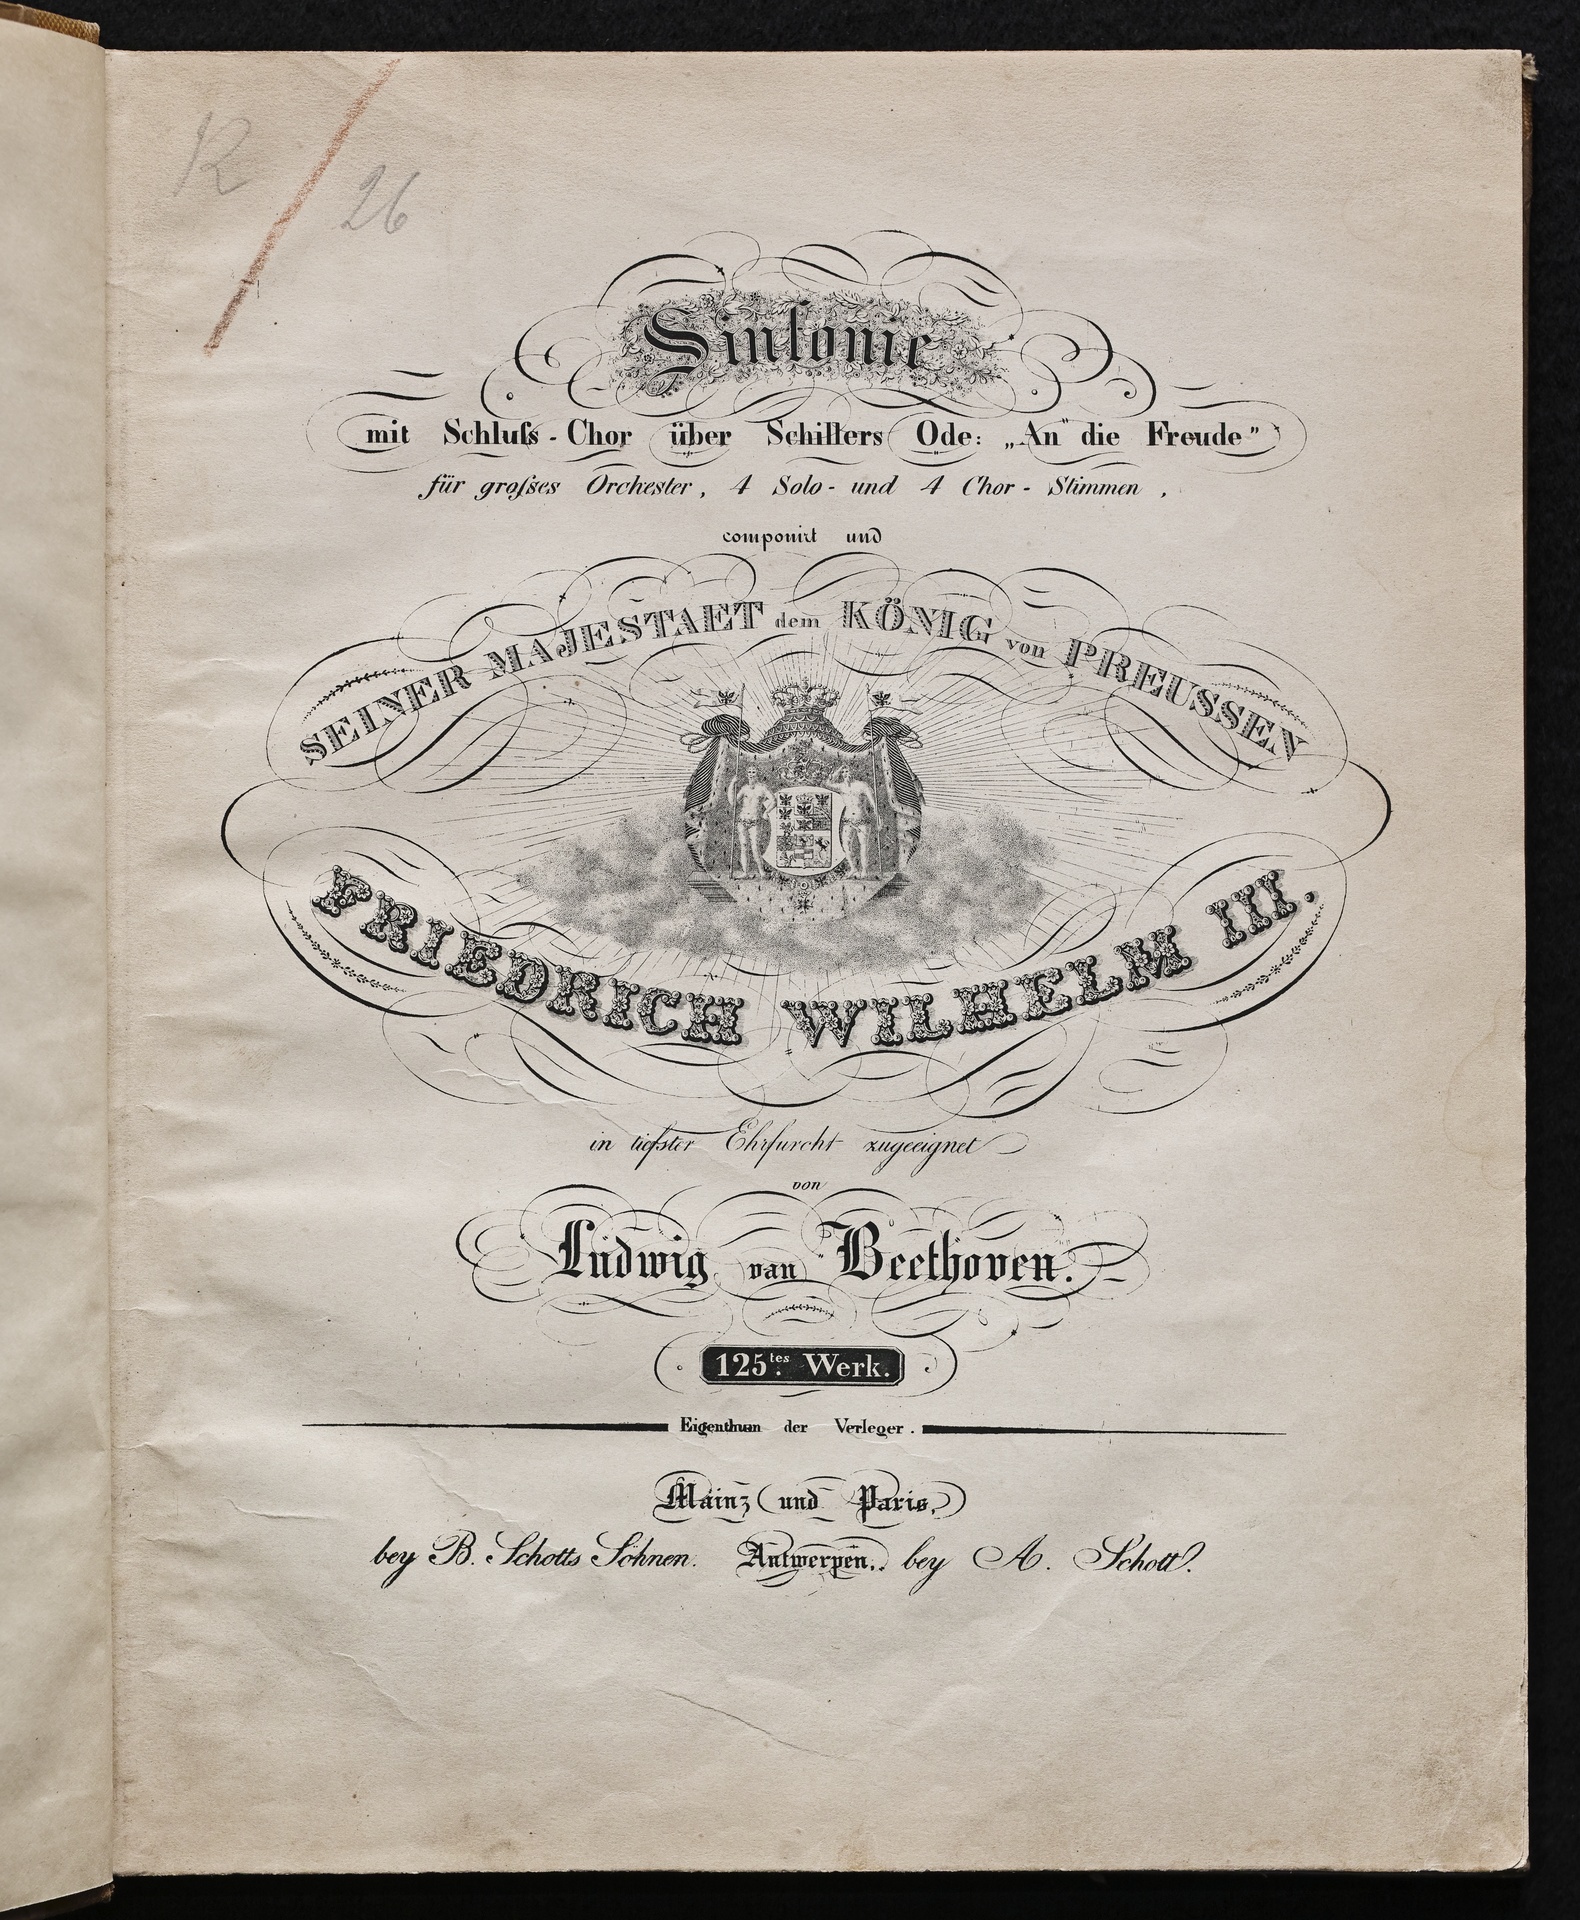 R
26
Sinfonie
mit Schluſs-Chor über Schillers Ode: „An" die Freude"
für groſses Orchester, 4 Solo- und 4 Chor-Stimmen,
componirt und
SEINER MAJESTAET dem KÖNIG von PREUSSEN
FRIEDRICH WILHELM III.
in tiefster Ehrfurcht zugeeignet
von
Ludwig van Beethoven.
125tes. Werk.
Eigenthum der Verleger.
Mainz und Paris,
bey B. Schotts Söhnen. Antwerpen, bey A. Schott.